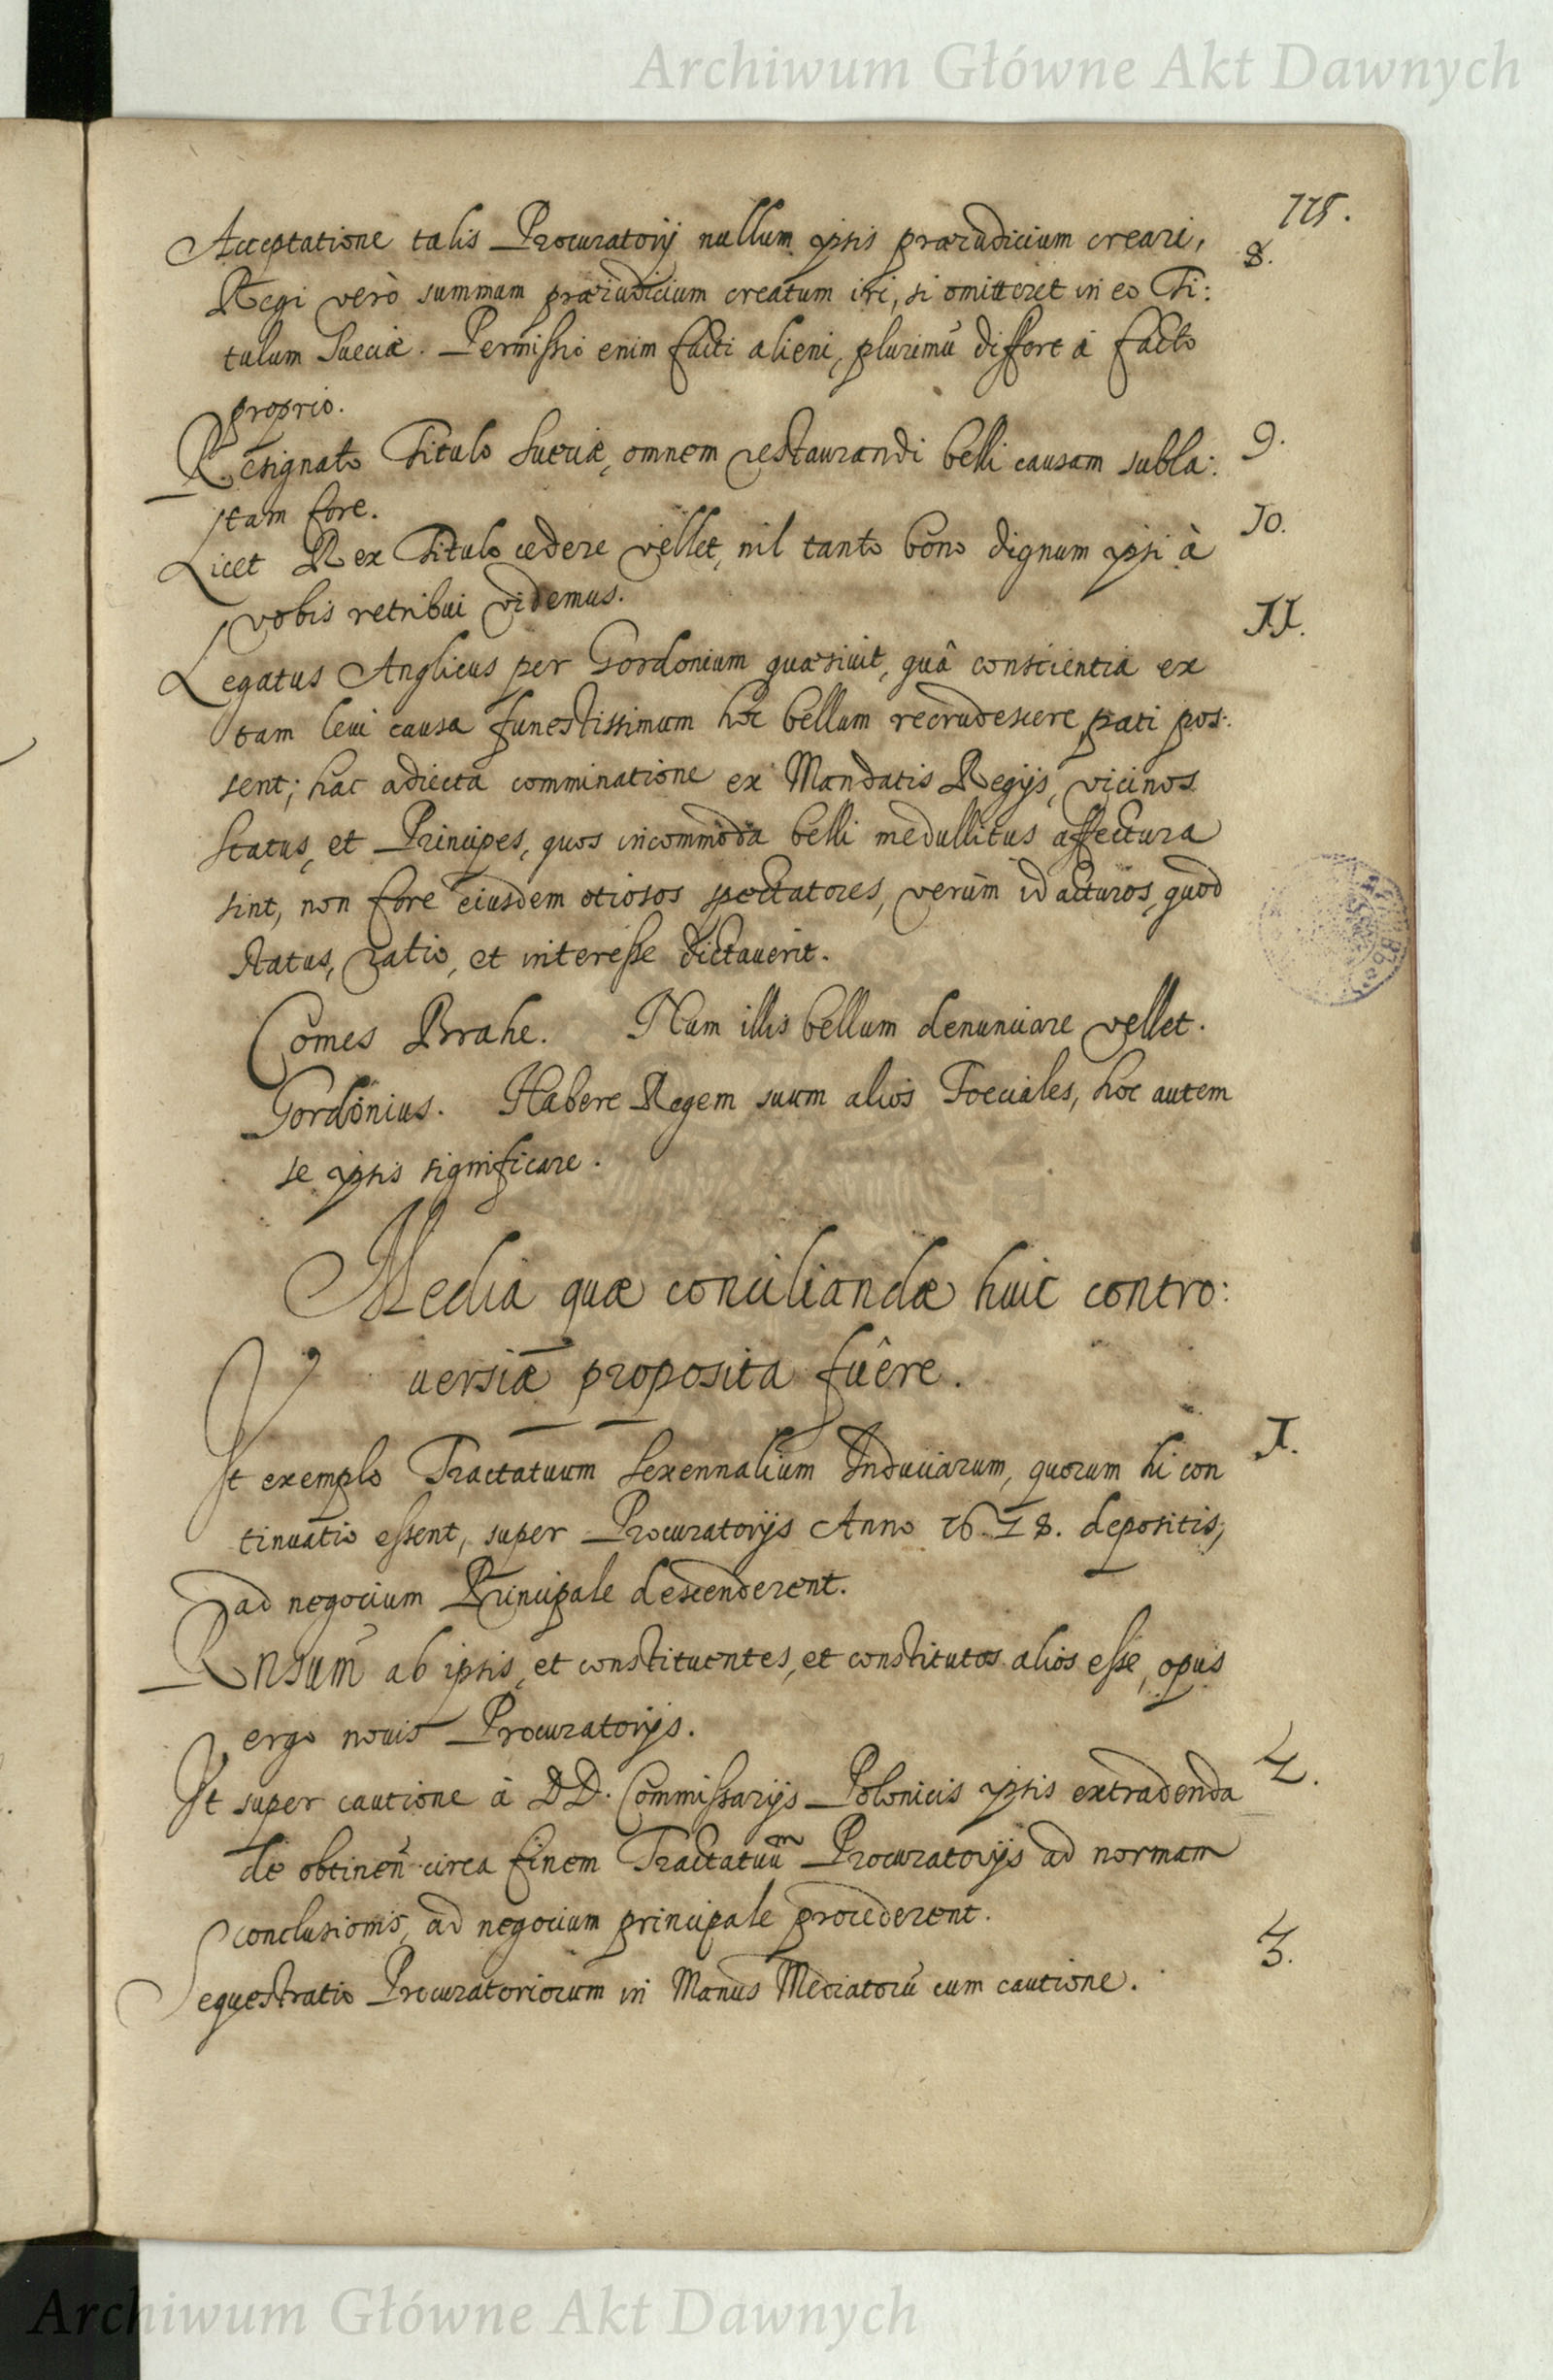 Archiwum Główne Akt Dawnych
115.
Acceptatione talis Procuratorij nullum ipsis præiudicium creari, 8.
Regi verò summum præiudicium creatum iri, si omitteret in eo Ti:
tulum Sueciæ. Permissio enim facti alieni, plurimũ differt à facto
proprio.
Resignato Titulo Sueciæ, omnem restaurandi belli causam subla: 9.
tam fore.
Licet Rex Titulo cedere vellet, nil tanto bono dignum ipsi à 10.
vobis retribui videmus.
Legatus Anglicus per Gordonium quæsiuit, quâ conscientia ex 11.
tam leui causa funestissimum hoc bellum recrudescere pati pos:
sent; hac adiecta comminatione ex Mandatis Regijs, vicinos
Status, et Principes, quos incommoda belli medullitus affectura
sint, non fore eiusdem otiosos spectatores, verùm id acturos, quod
status, ratio, et interesse dictauerit.
Comes Brahe. Num illis bellum denunciare vellet.
Gordonius. Habere Regem suum alios Foeciales, hoc autem
se ipsis significare.
Media quæ conciliandæ huic contro:
uersiæ proposita fuêre.
Vt exemplo Tractatuum Sexennalium Induciarum, quorum hi con 1.
tinuatio essent, super Procuratorijs Anno 1628. depositis,
ad negocium Principale descenderent.
Rnsum ab ipsis, et constituentes, et constitutos alios esse, opus
ergo nouis Procuratorijs.
Vt super cautione à DD. Commissarijs Polonicis ipsis extradenda 2.
de obtineñ circa finem Tractatuum Procuratorijs ad normam
conclusionis, ad negocium principale procederent.
Sequestratio Procuratoriorum in Manus Mediatorũ cum cautione. 3.
Archiwum Główne Akt Dawnych